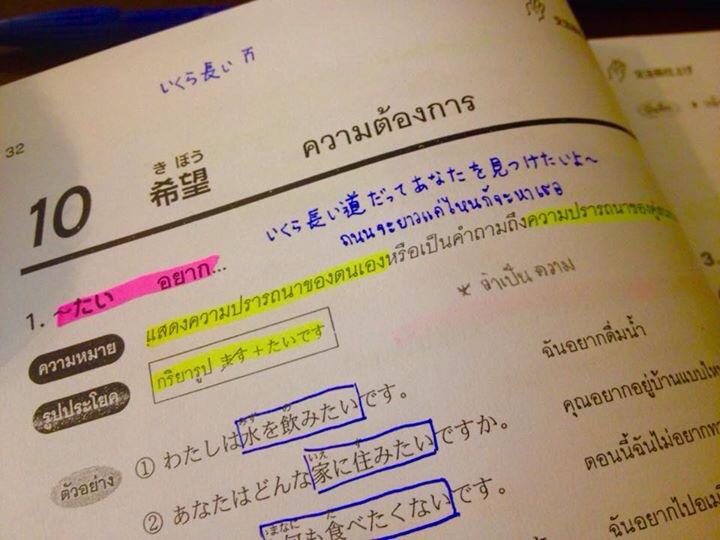 いくら長い
32
10
きぼう
希望
ความต้องการ
いくら長い道だってあなたを見つけたいよ〜
ถนนจะยาวแค่ไหนก็จะหาเธอ
1. 〜たい อยาก...
ความหมาย
แสดงความปรารถนาของตนเองหรือเป็นคำถามถึงความปรารถนาของ
* จำเป็น ความ
รูปประโยค
กริยารูป ます + たいです
ตัวอย่าง
① わたしは水を飲みたいです。
ฉันอยากดื่มน้ำ
② あなたはどんな家に住みたいですか。
คุณอยากอยู่บ้านแบบ
何も食べたくないです。
ตอนนี้ฉันไม่อยาก
ฉันอยากไป
3.